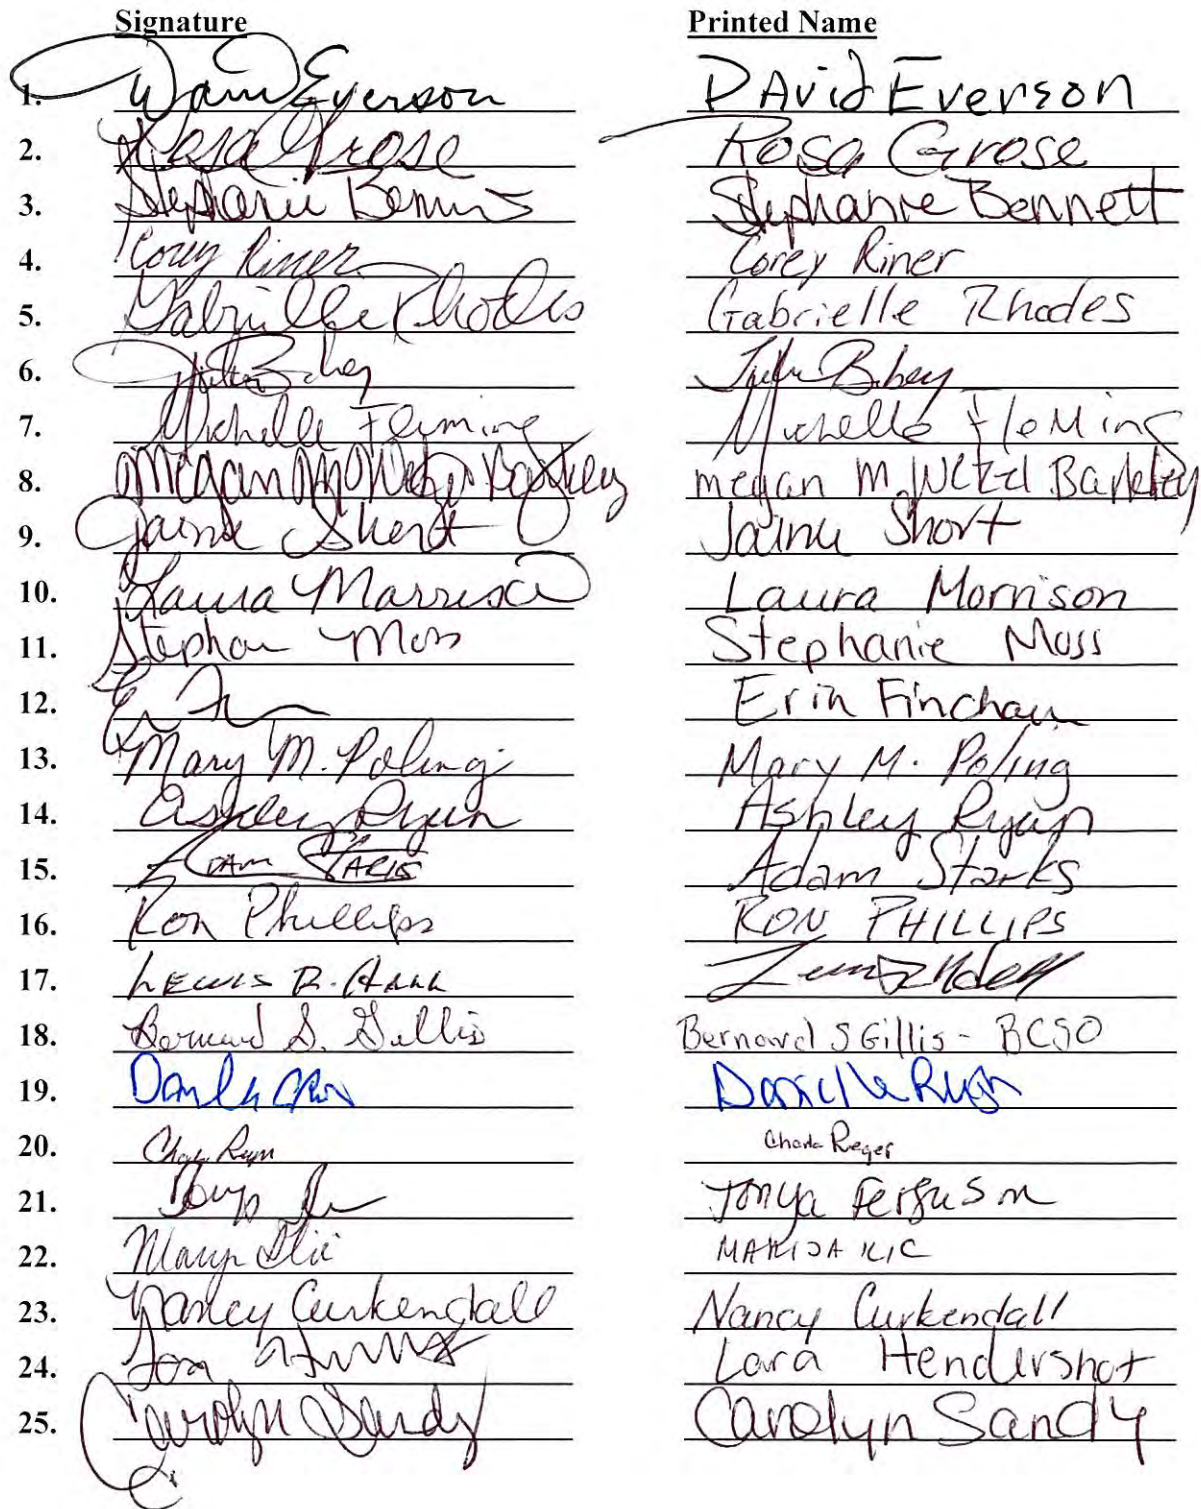 Signature Printed Name
1. David Everson DAvid Everson
2. Rosa Grose Rosa Grose
3. Stephanie Stephanie Bennett
4. Corey Riner Corey Riner
5. Gabrielle Rhodes Gabrielle Rhodes
6. Bibey
7. Michelle Fleming Michelle FleMing
8. Megan M megan M Barkley
9. Jaime Short Jaime Short
10. Laura Morrison Laura Morrison
11. Moss Stephanie Moss
12. Erin Fincham
13. Mary M. Poling Mary M. Poling
14. Ashley Ryan Ashley Ryan
15. ADAM STARKS Adam Starks
16. Ron Phillips RON PHILLIPS
17. LEWIS R.
18. Bernard S. Gillis Bernard S Gillis - BCSO
19. Danielle Ryan
20. Reger
21. Tonya Ferguson
22. Marija Ilic MARIJA ILIC
23. Nancy Curkendall Nancy Curkendall
24. Lara Hendershot
25. Carolyn Sandy Carolyn Sandy